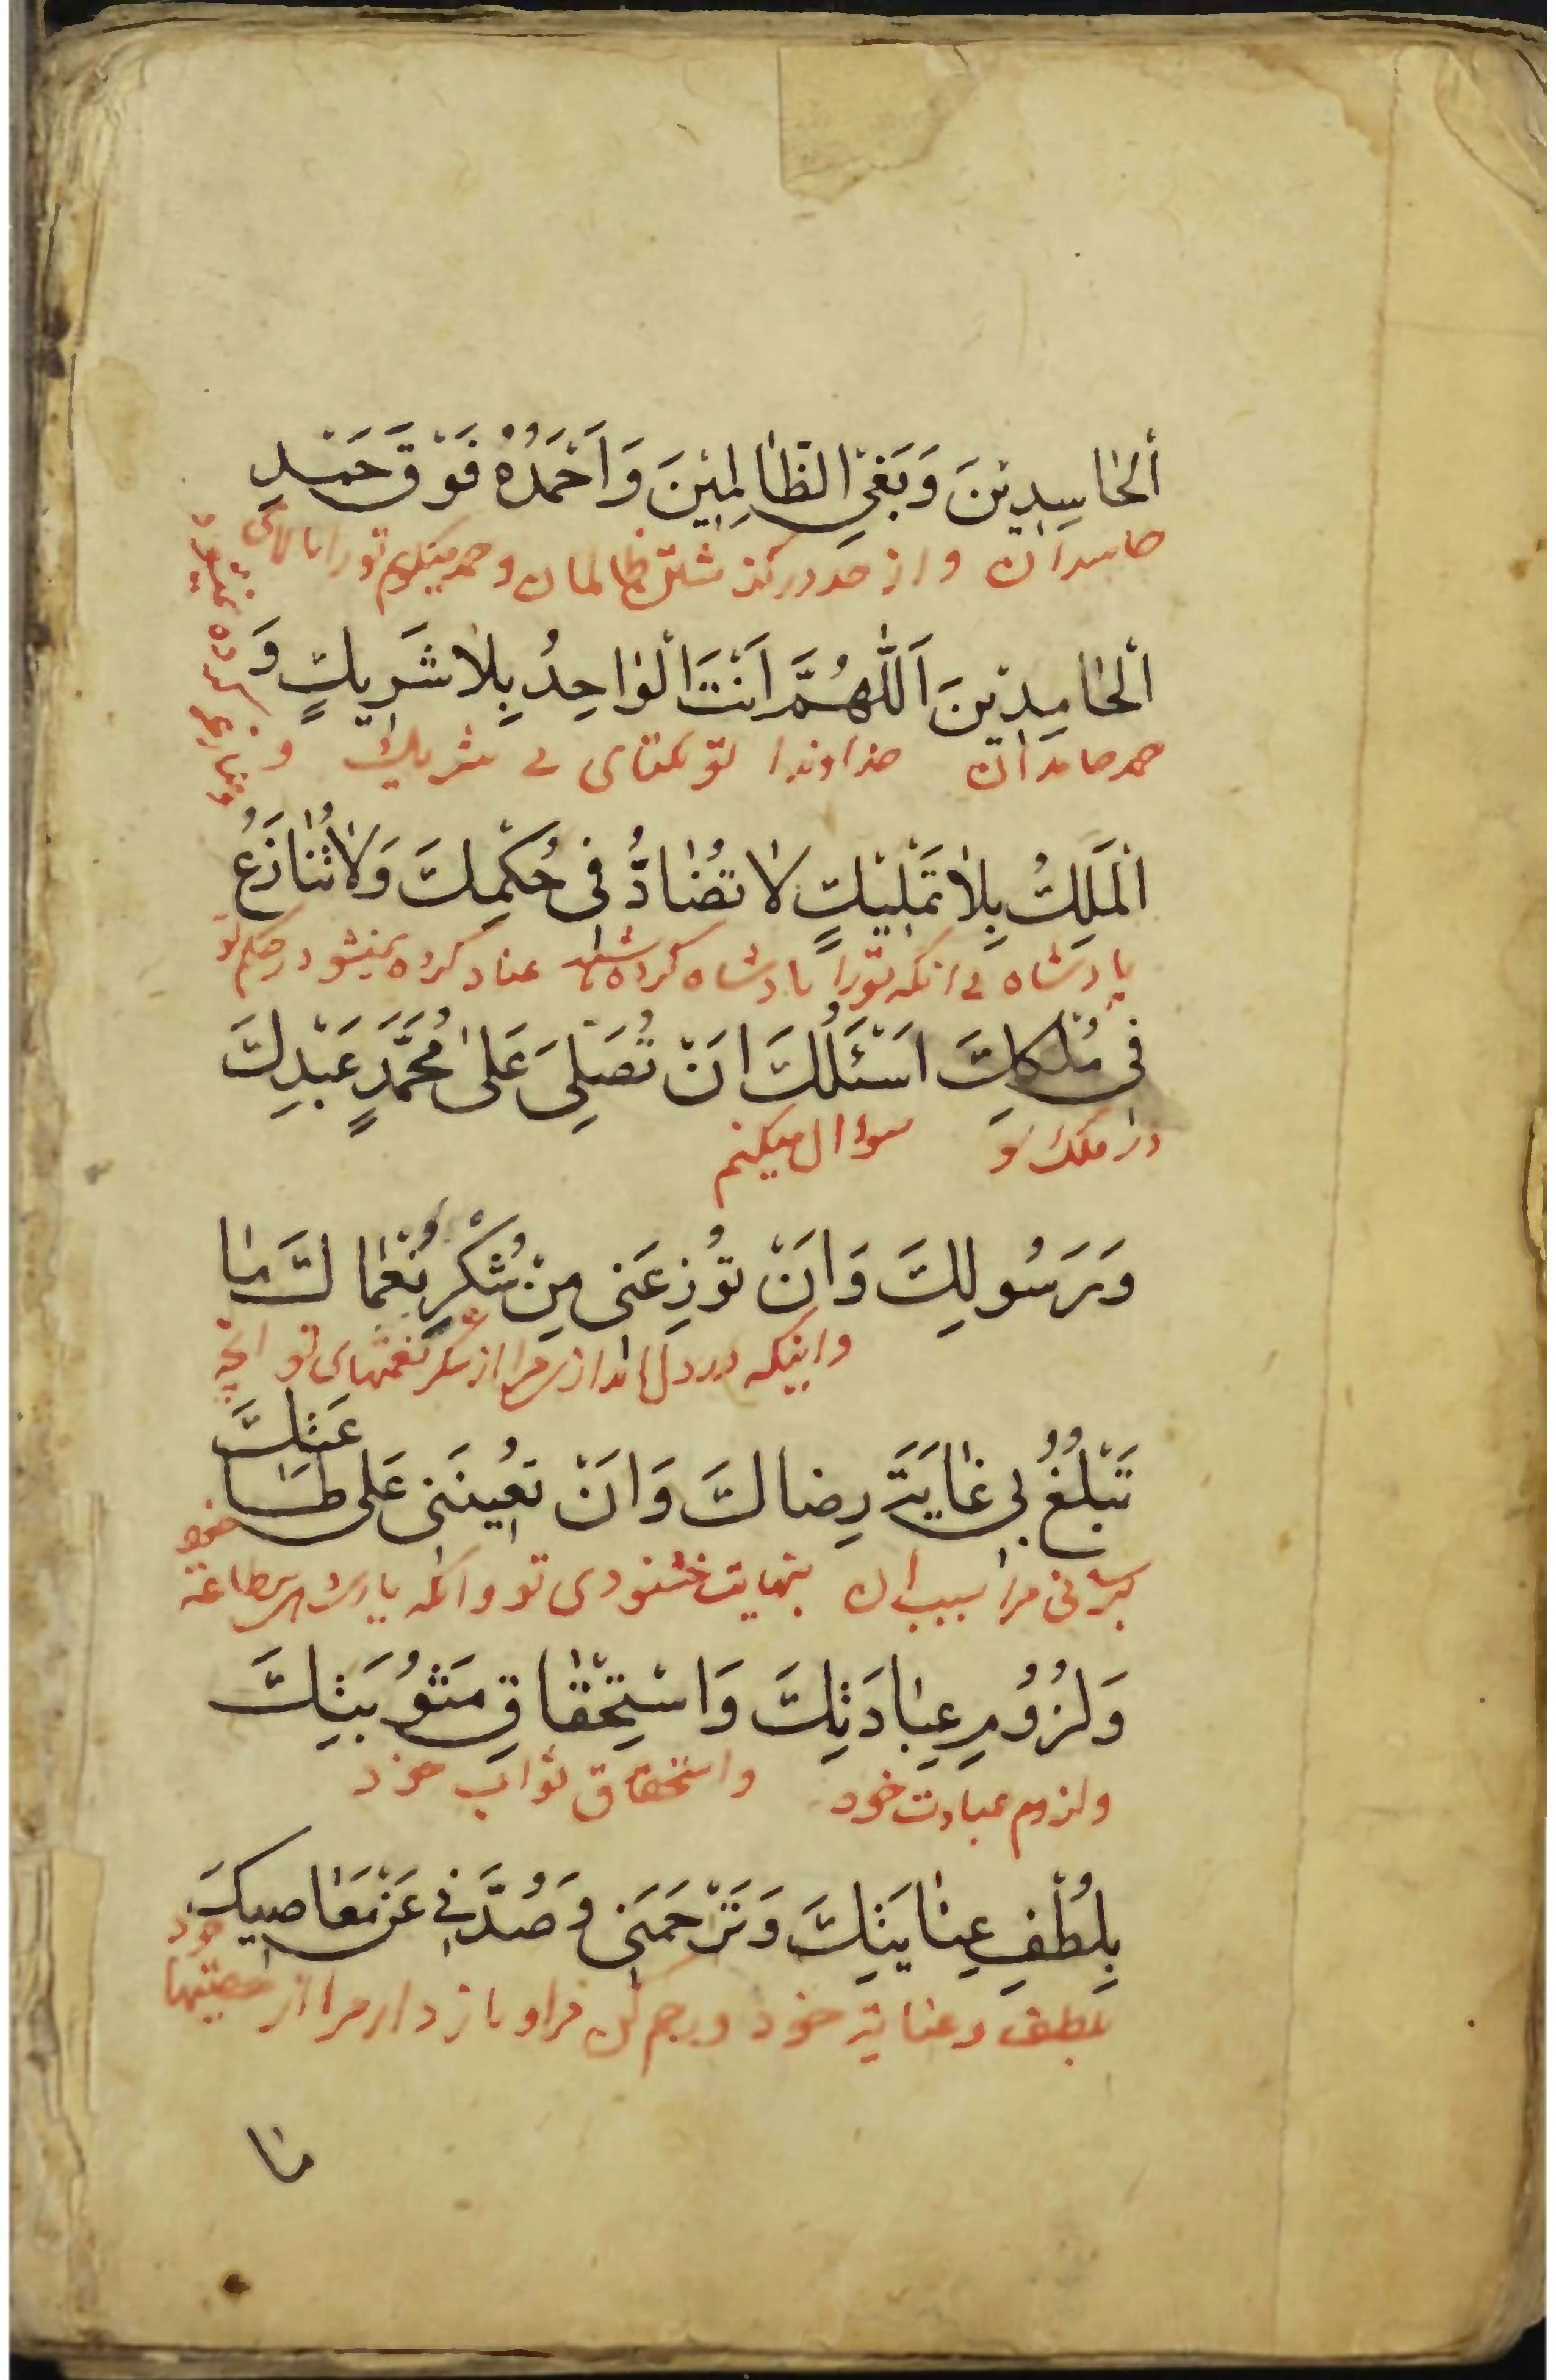 اَلْحٰاسِدِیْنَ وَبَغْیِ الظّٰالِمِیْنَ وَاَحْمَدُهُ فَوْقَ حَمْدِ
حاسدان و از حد درگذشتن ظالمان و حمد میکنم تو را بالای
اَلْحٰامِدِیْنَ اَللّٰهُمَّ اَنْتَ الْوٰاحِدُ بِلٰا شَرِیكٍ وَ
حمد حامدان خداوندا تو یکتای بی شریك و
الْمَلِكُ بِلٰا تَمْلِیْكٍ لٰا تُضٰادُّ فی حُكْمِكَ وَلٰا تُنٰازَعُ
پادشاه بی انکه تو را پادشاه کرده باشند عناد کرده نمیشود در حکم تو
فی مُلْكِكَ اَسْئَلُكَ اَنْ تُصَلِّیَ عَلٰی مُحَمَّدٍ عَبْدِكَ
در ملک تو سؤال میکنم
وَرَسُولِكَ وَاَنْ تُوزِعَنی مِنْ شُكْرِ نُعْمٰاكَ مٰا
و اینکه در دل اندازی مرا از شکر نعمتهای تو انچه
تَبْلُغُ بی غٰایَةَ رِضٰاكَ وَاَنْ تُعِینَنی عَلی طٰاعَتِكَ
برسانی مرا بسبب ان بنهایت خشنودی تو و انکه یاری بر طاعة خود
وَلُزُوُمِ عِبٰادَتِكَ وَاسْتِحْقٰاقِ مَثُوبَتِكَ
و لزوم عبادت خود و استحقاق ثواب خود
بِلُطْفِ عِنٰایَتِكَ وَتَرْحَمَنی وَصُدَّنی عَنْ مَعٰاصیكَ
بلطف و عنایة خود و رحم کن مرا و باز دار مرا از معصیتها خود
مٰا